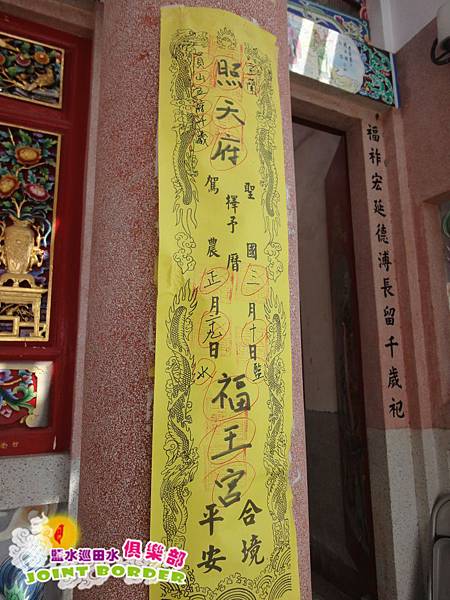 宜蘭
員山五府千歲
照天府
聖駕
擇予
國曆三月十日
農曆正月廿九日
水
福王宮
合境
平安
福祚宏延德溥長留千歲祀
鹽水巡田水俱樂部
JOINT BORDER